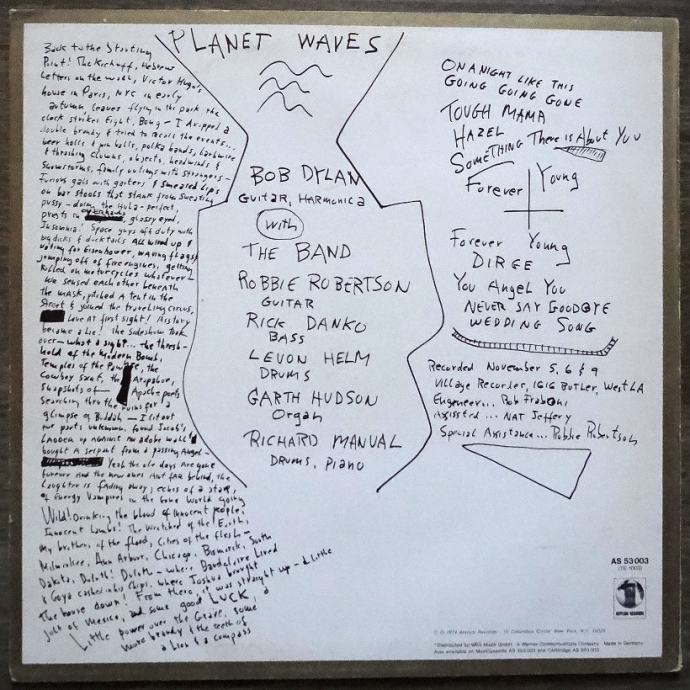 PLANET WAVES
Back to the Starting
Point! The Kickoff, Hebrew
letters on the walls, Victor Hugo's
house in Paris, NYC in early
autumn, leaves flying in the park, the
clock strikes Eight. Bong — I dropped a
double brandy & tried to recall the events...
beer halls & pin balls, polka bands, barbwire
& thrashing clowns, objects, headwinds &
snowstorms, family outings with strangers —
Furious gals with garters & smeared lips
on bar stools that stank from sweating
pussy — doing the Hula — perfect,
priests in overhauls, glassy eyed,
Insomnia! Space guys off duty with
big dicks & ducktails All wired up &
voting for Eisenhower, waving flags &
jumping off of fire engines, getting
killed on motorcycles whatever —
We sensed each other beneath
the mask, pitched a tent in the
Street & joined the traveling circus,
love at first sight! History
became a lie! the sideshow took
over — what a sight... the thresh-
hold of the Modern Bomb,
Temples of the Pawnee, the
Cowboy Saint, the Arapahoe,
Snapshots of Apache poets
searching thru the ruins for a
glimpse of Buddah — I lit out
for parts unknown, found Jacob's
ladder up against an adobe wall &
bought a serpent from a passing Angel —
Yeah the ole days are gone
forever and the new ones aint far behind, the
Laughter is fading away, echos of a star,
of Energy Vampires in the Gone World going
Wild! Drinking the blood of innocent people,
Innocent Lambs! The Wretched of the Earth,
My brothers of the flood, Cities of the flesh —
Milwaukee, Ann Arbor, Chicago, Bismarck, South
Dakota, Duluth! Duluth — where Baudelaire Lived
& Goya cashed in his Chips, where Joshua brought
the house down! From there, it was straight up — a little
jolt of Mexico, and some good LUCK, a
Little power over the Grave, some
more brandy & the teeth of
a Lion & a compass
BOB DYLAN
GUITAR, HARMONICA
With
THE BAND
ROBBIE ROBERTSON
GUITAR
RICK DANKO
BASS
LEVON HELM
DRUMS
GARTH HUDSON
Organ
RICHARD MANUAL
DRUMS, PIANO
ON A NIGHT LIKE THIS
GOING GOING GONE
TOUGH MAMA
HAZEL
SOMETHING There is About You
Forever Young
Forever Young
DIRGE
You Angel You
NEVER SAY GOODBYE
WEDDING SONG
Recorded November 5, 6 & 9
Village Recorder, 1616 Butler, West LA
Engineer... Rob Fraboni
Assisted... NAT Jeffery
Special Assistance... Robbie Robertson
AS 53 003
(7E-1003)
ASYLUM RECORDS
© ℗ 1974 Asylum Records 10 Columbus Circle New York, N.Y. 10019
Distributed by WEA Musik GmbH A Warner Communications Company Made in Germany
Also available on MusiCassette AS 453 003 and Cartridge AS 853 003